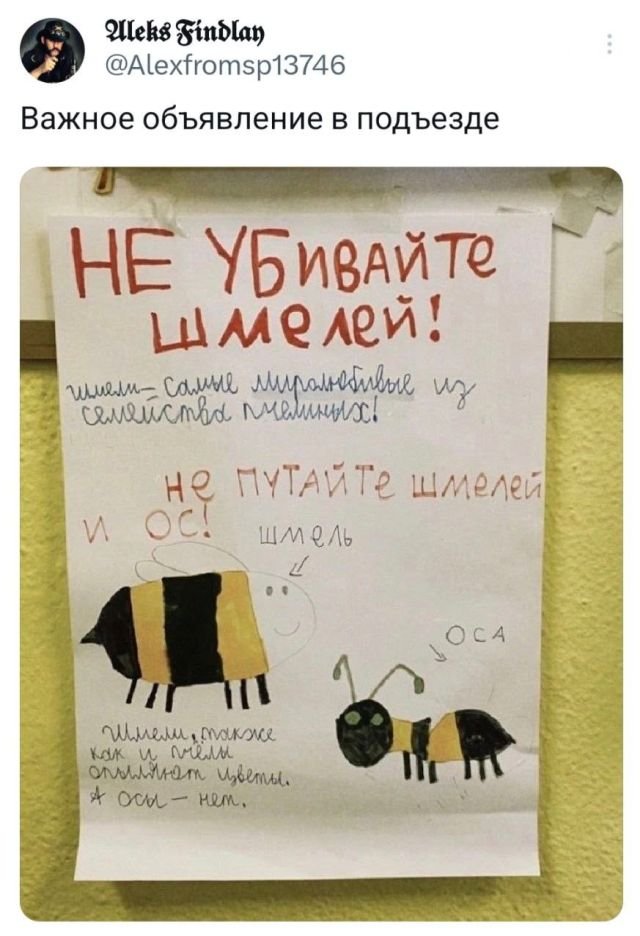 Aleks Findlay
@Alexfromsp13746
Важное объявление в подъезде
НЕ УБИВАЙТЕ
ШМЕЛЕЙ!
шмели- самые миролюбивые из
семейства пчелиных!
НЕ ПУТАЙТЕ ШМЕЛЕЙ
И ОС!
ШМЕЛЬ
ОСА
Шмели, также
как и пчёлы
опыляют цветы.
А осы - нет.